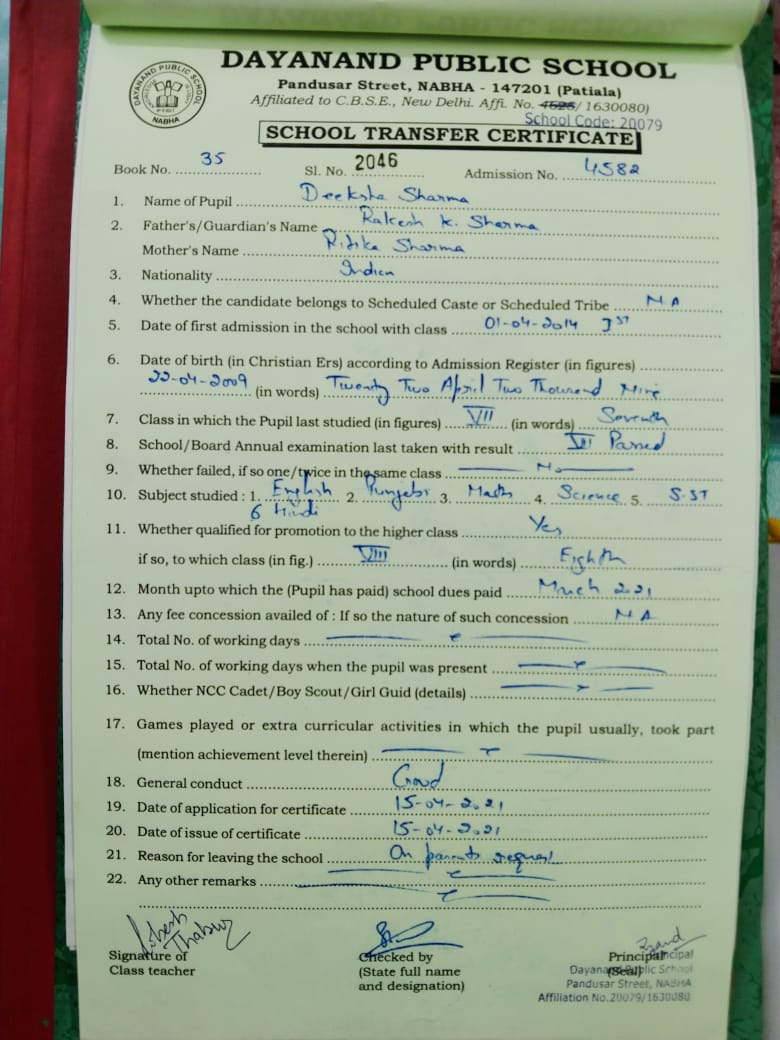 DAYANAND PUBLIC SCHOOL
DAYANAND PUBLIC SCHOOL
NABHA
Pandusar Street, NABHA - 147201 (Patiala)
Affiliated to C.B.S.E., New Delhi. Affi. No. 4526/ 1630080)
School Code: 20079
SCHOOL TRANSFER CERTIFICATE
Book No. 35 Sl. No. 2046 Admission No. 4582
1. Name of Pupil Deeksha Sharma
2. Father's/Guardian's Name Rakesh K. Sharma
Mother's Name Ritika Sharma
3. Nationality Indian
4. Whether the candidate belongs to Scheduled Caste or Scheduled Tribe N A
5. Date of first admission in the school with class 01-04-2014 IST
6. Date of birth (in Christian Ers) according to Admission Register (in figures)
22-04-2009 (in words) Twenty Two April Two Thousand Nine
7. Class in which the Pupil last studied (in figures) VII (in words) Seventh
8. School/Board Annual examination last taken with result VII Passed
9. Whether failed, if so one/twice in the same class No
10. Subject studied : 1. English 2. Punjabi 3. Math 4. Science 5. S.ST
6 Hindi
11. Whether qualified for promotion to the higher class Yes
if so, to which class (in fig.) VIII (in words) Eighth
12. Month upto which the (Pupil has paid) school dues paid March 2021
13. Any fee concession availed of : If so the nature of such concession N A
14. Total No. of working days
15. Total No. of working days when the pupil was present
16. Whether NCC Cadet/Boy Scout/Girl Guid (details)
17. Games played or extra curricular activities in which the pupil usually, took part
(mention achievement level therein)
18. General conduct Good
19. Date of application for certificate 15-04-2021
20. Date of issue of certificate 15-04-2021
21. Reason for leaving the school On parents request
22. Any other remarks
Signature of
Class teacher
Checked by
(State full name
and designation)
Principal
(Seal)
Principal
Dayanand Public School
Pandusar Street, NABHA
Affiliation No.20079/1630080